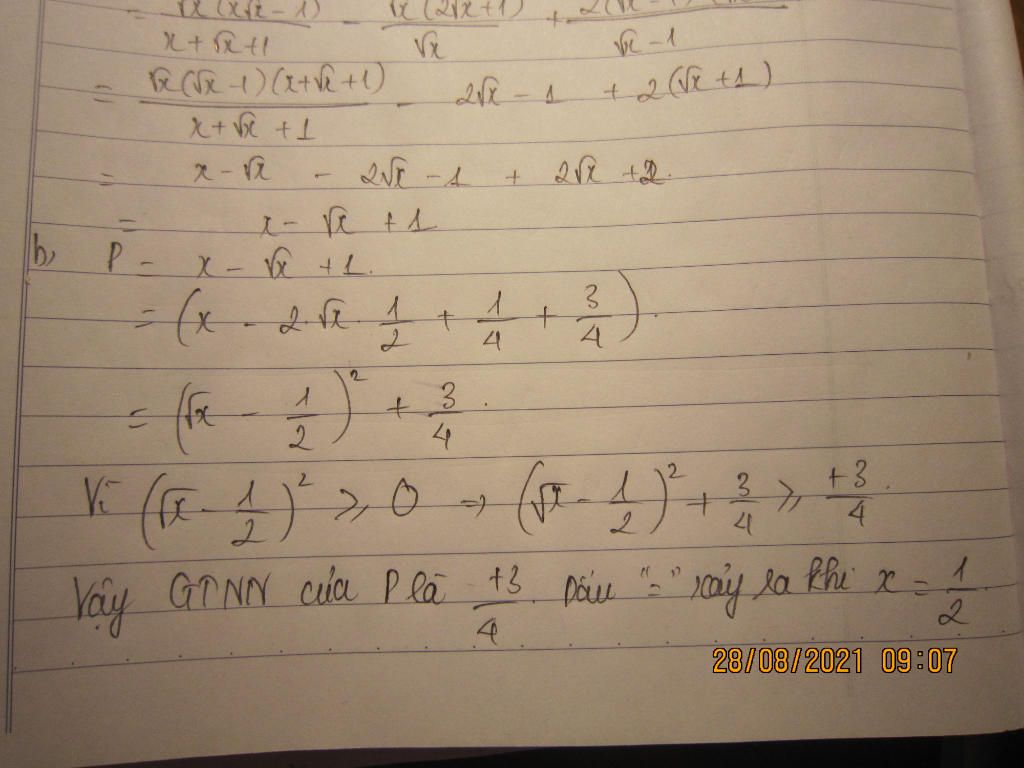 = √x(x√x-1)/(x+√x+1) - √x(2√x+1)/√x + 2(√x-1)/(√x-1)
= √x(√x-1)(x+√x+1)/(x+√x+1) - 2√x - 1 + 2(√x+1)
= x - √x - 2√x - 1 + 2√x + 2.
= x - √x + 1
b, P = x - √x + 1.
= (x - 2.√x.1/2 + 1/4 + 3/4).
= (√x - 1/2)² + 3/4.
Vì (√x - 1/2)² ≥ 0 → (√x - 1/2)² + 3/4 ≥ +3/4.
Vậy GTNN của P là +3/4. Dấu "=" xảy ra khi x = 1/2.
28/08/2021 09:07